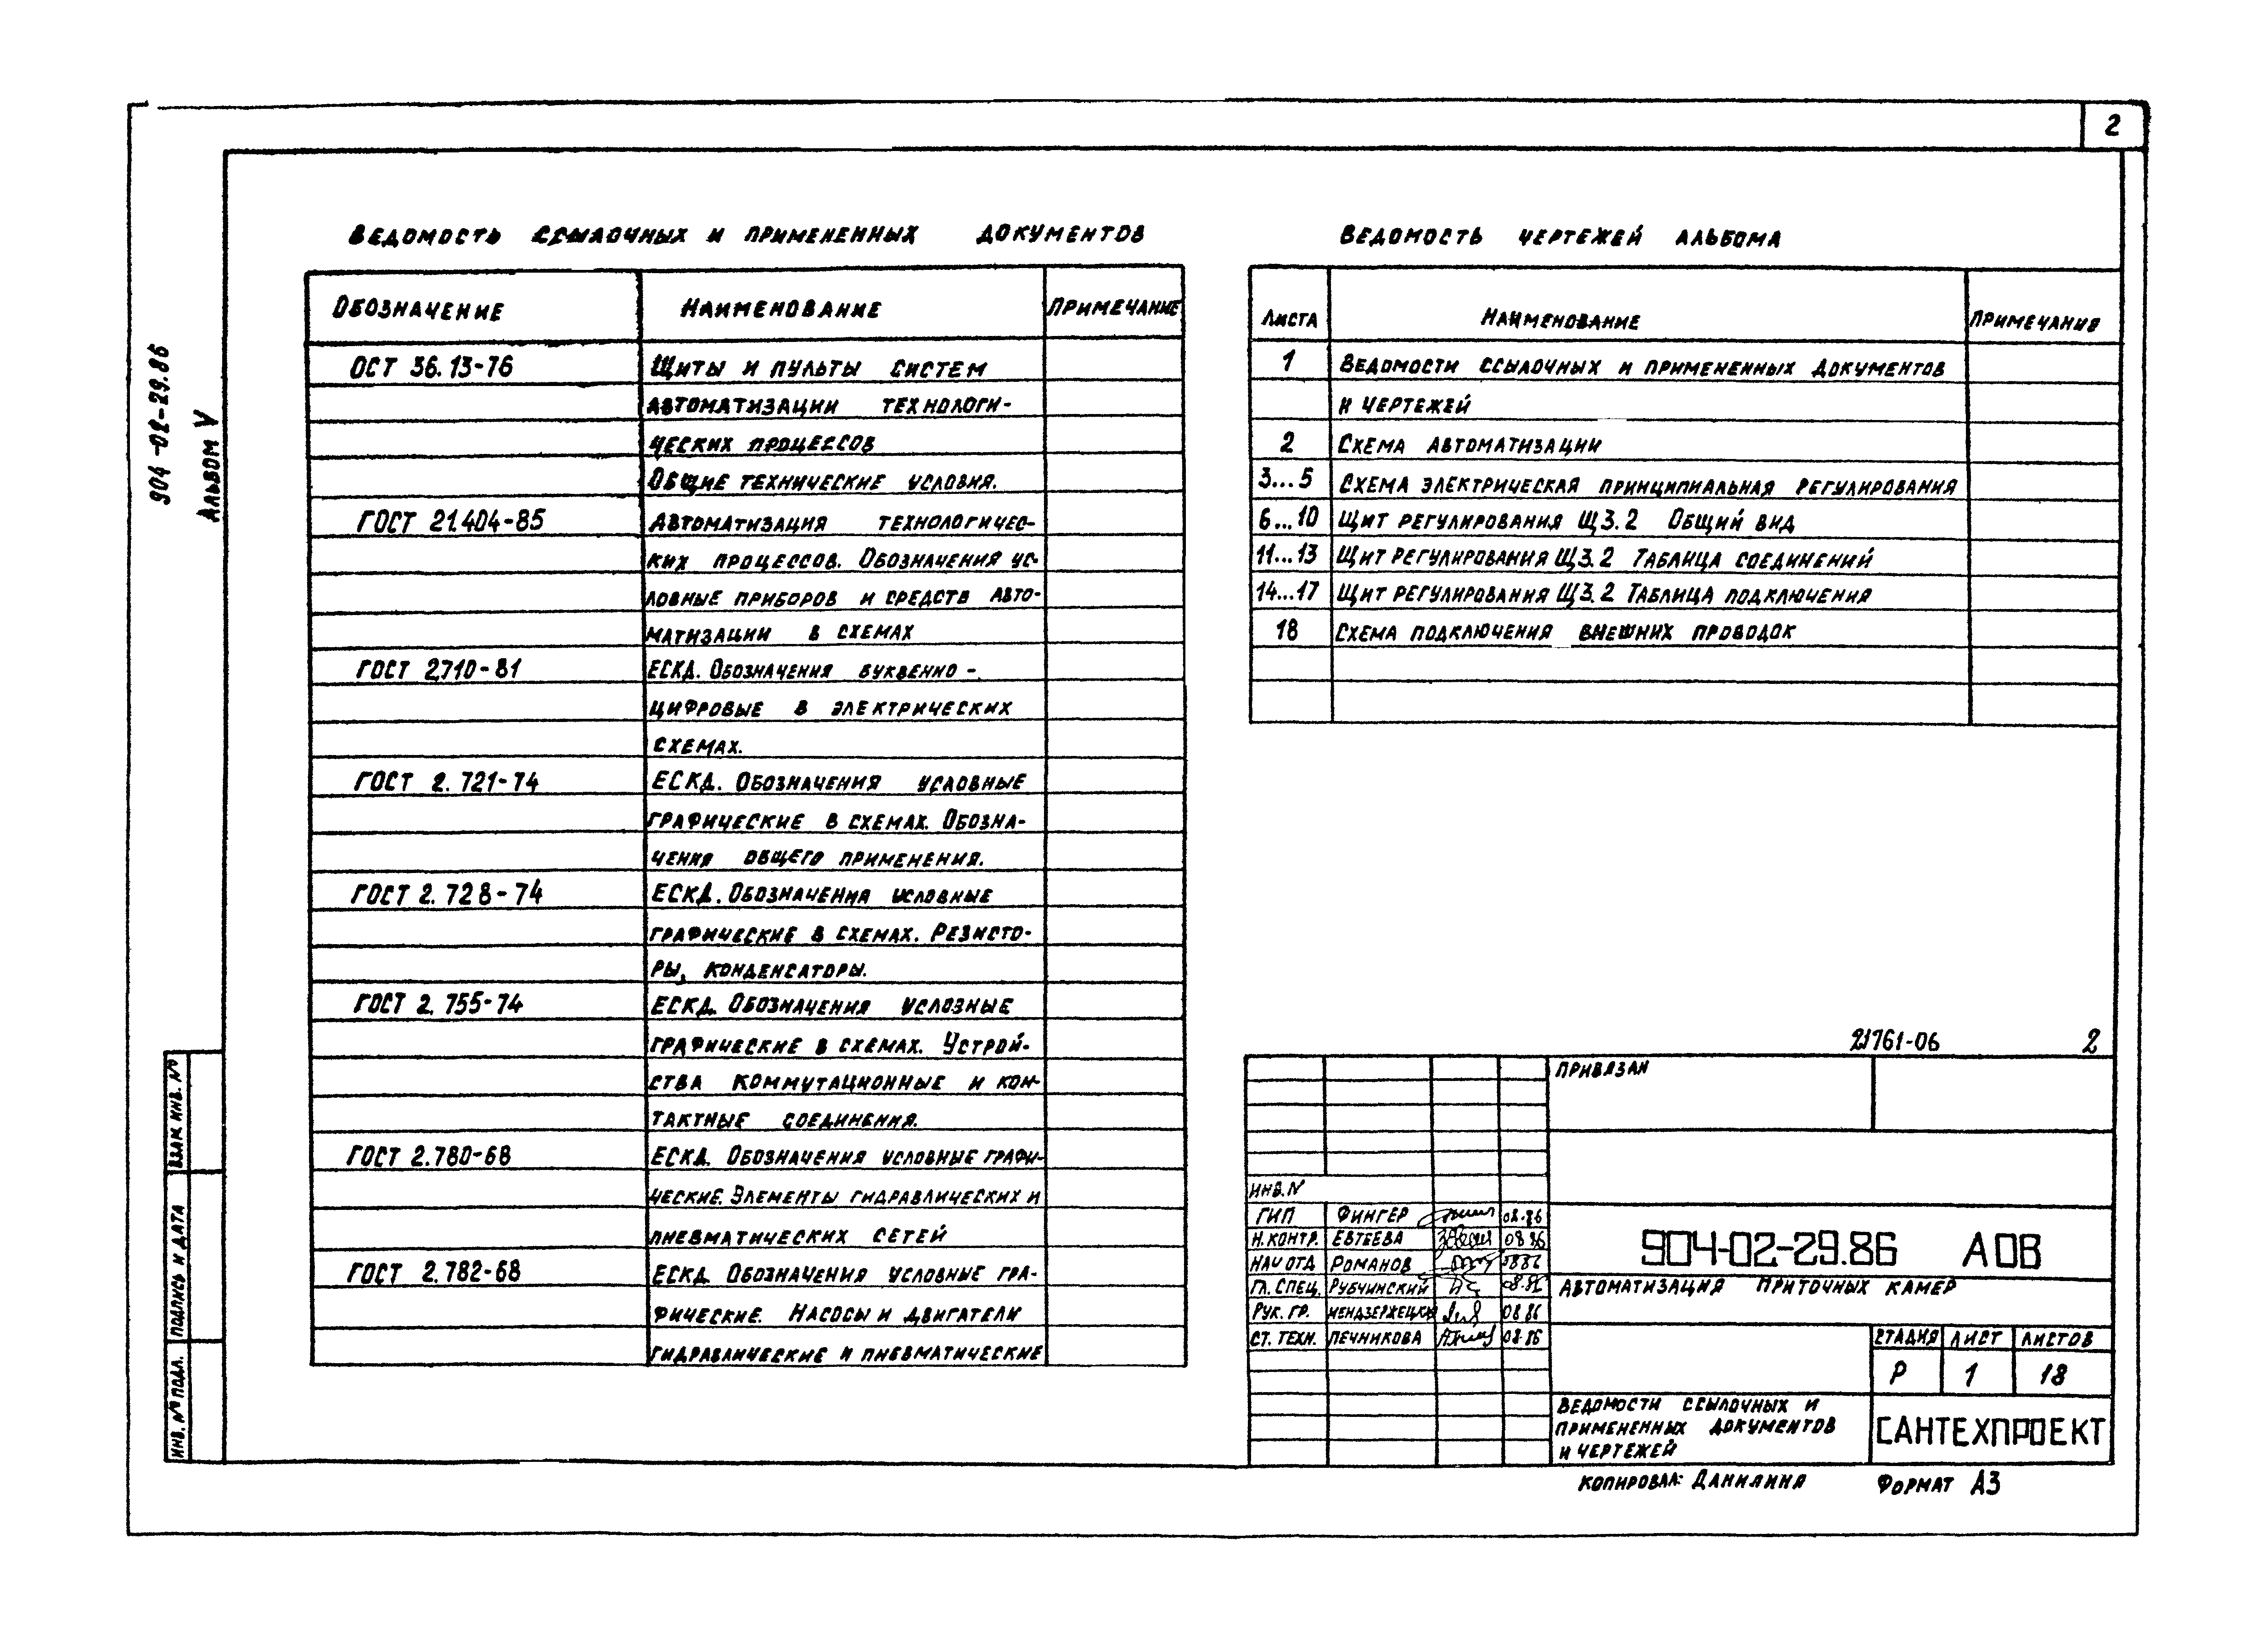 2
904-02-29.86
Альбом V
Ведомость ссылочных и примененных документов
Обозначение Наименование Примечание
ОСТ 36.13-76 Щиты и пульты систем
автоматизации технологи-
ческих процессов
Общие технические условия.
ГОСТ 21.404-85 Автоматизация технологичес-
ких процессов. Обозначения ус-
ловные приборов и средств авто-
матизации в схемах
ГОСТ 2.710-81 ЕСКД. Обозначения буквенно-
цифровые в электрических
схемах.
ГОСТ 2.721-74 ЕСКД. Обозначения условные
графические в схемах. Обозна-
чения общего применения.
ГОСТ 2.728-74 ЕСКД. Обозначения условные
графические в схемах. Резисто-
ры, конденсаторы.
ГОСТ 2.755-74 ЕСКД. Обозначения условные
графические в схемах. Устрой-
ства коммутационные и кон-
тактные соединения.
ГОСТ 2.780-68 ЕСКД. Обозначения условные графи-
ческие. Элементы гидравлических и
пневматических сетей
ГОСТ 2.782-68 ЕСКД. Обозначения условные гра-
фические. Насосы и двигатели
гидравлические и пневматические
Ведомость чертежей альбома
Листа Наименование Примечания
1 Ведомости ссылочных и примененных документов
и чертежей
2 Схема автоматизации
3...5 Схема электрическая принципиальная регулирования
6...10 Щит регулирования Щ3.2 Общий вид
11...13 Щит регулирования Щ3.2 Таблица соединений
14...17 Щит регулирования Щ3.2 Таблица подключения
18 Схема подключения внешних проводок
21761-06 2
Привязан
Инв. N
ГИП Фингер 08.86
Н. контр. Евтеева 08 86
Нач отд Романов 0886
Гл. спец. Рубчинский 08.86
Рук. гр. 08 86
Ст. техн. Печникова 08.86
904-02-29.86 АОВ
Автоматизация приточных камер
Стадия Лист Листов
Р 1 18
Ведомости ссылочных и
примененных документов
и чертежей
САНТЕХПРОЕКТ
Копировал: Данилина Формат А3
Взам. инв. №
Подпись и дата
Инв. № подл.